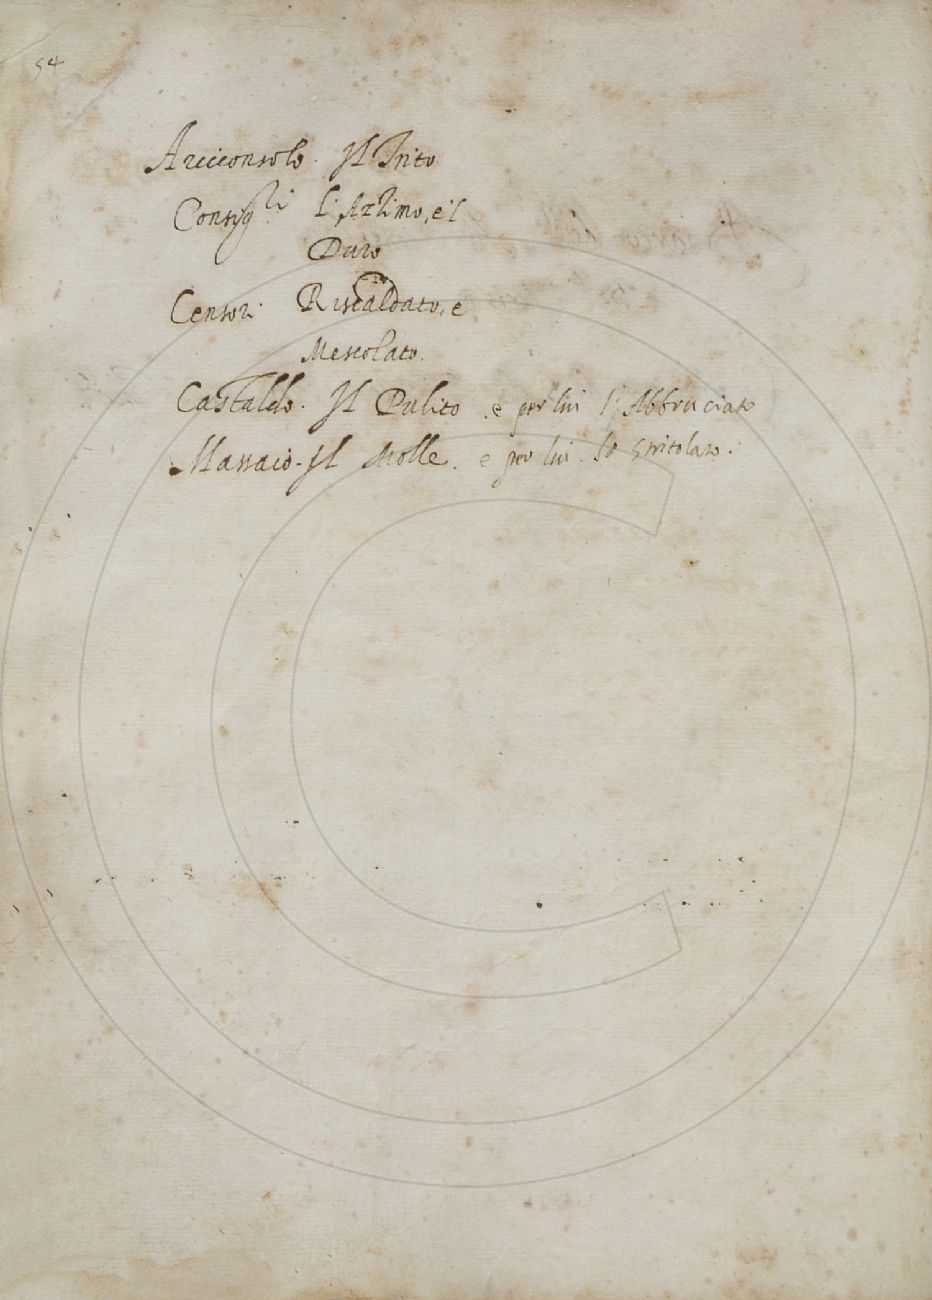 54
Arciconsolo. Il Trito
Consig.ri L'Azzimo, e il
Duro
Censori Riscaldato, e
Mescolato.
Castaldo. Il Pulito e per lui l'Abbruciato
Massaio. Il Molle. e per lui lo Stritolato.